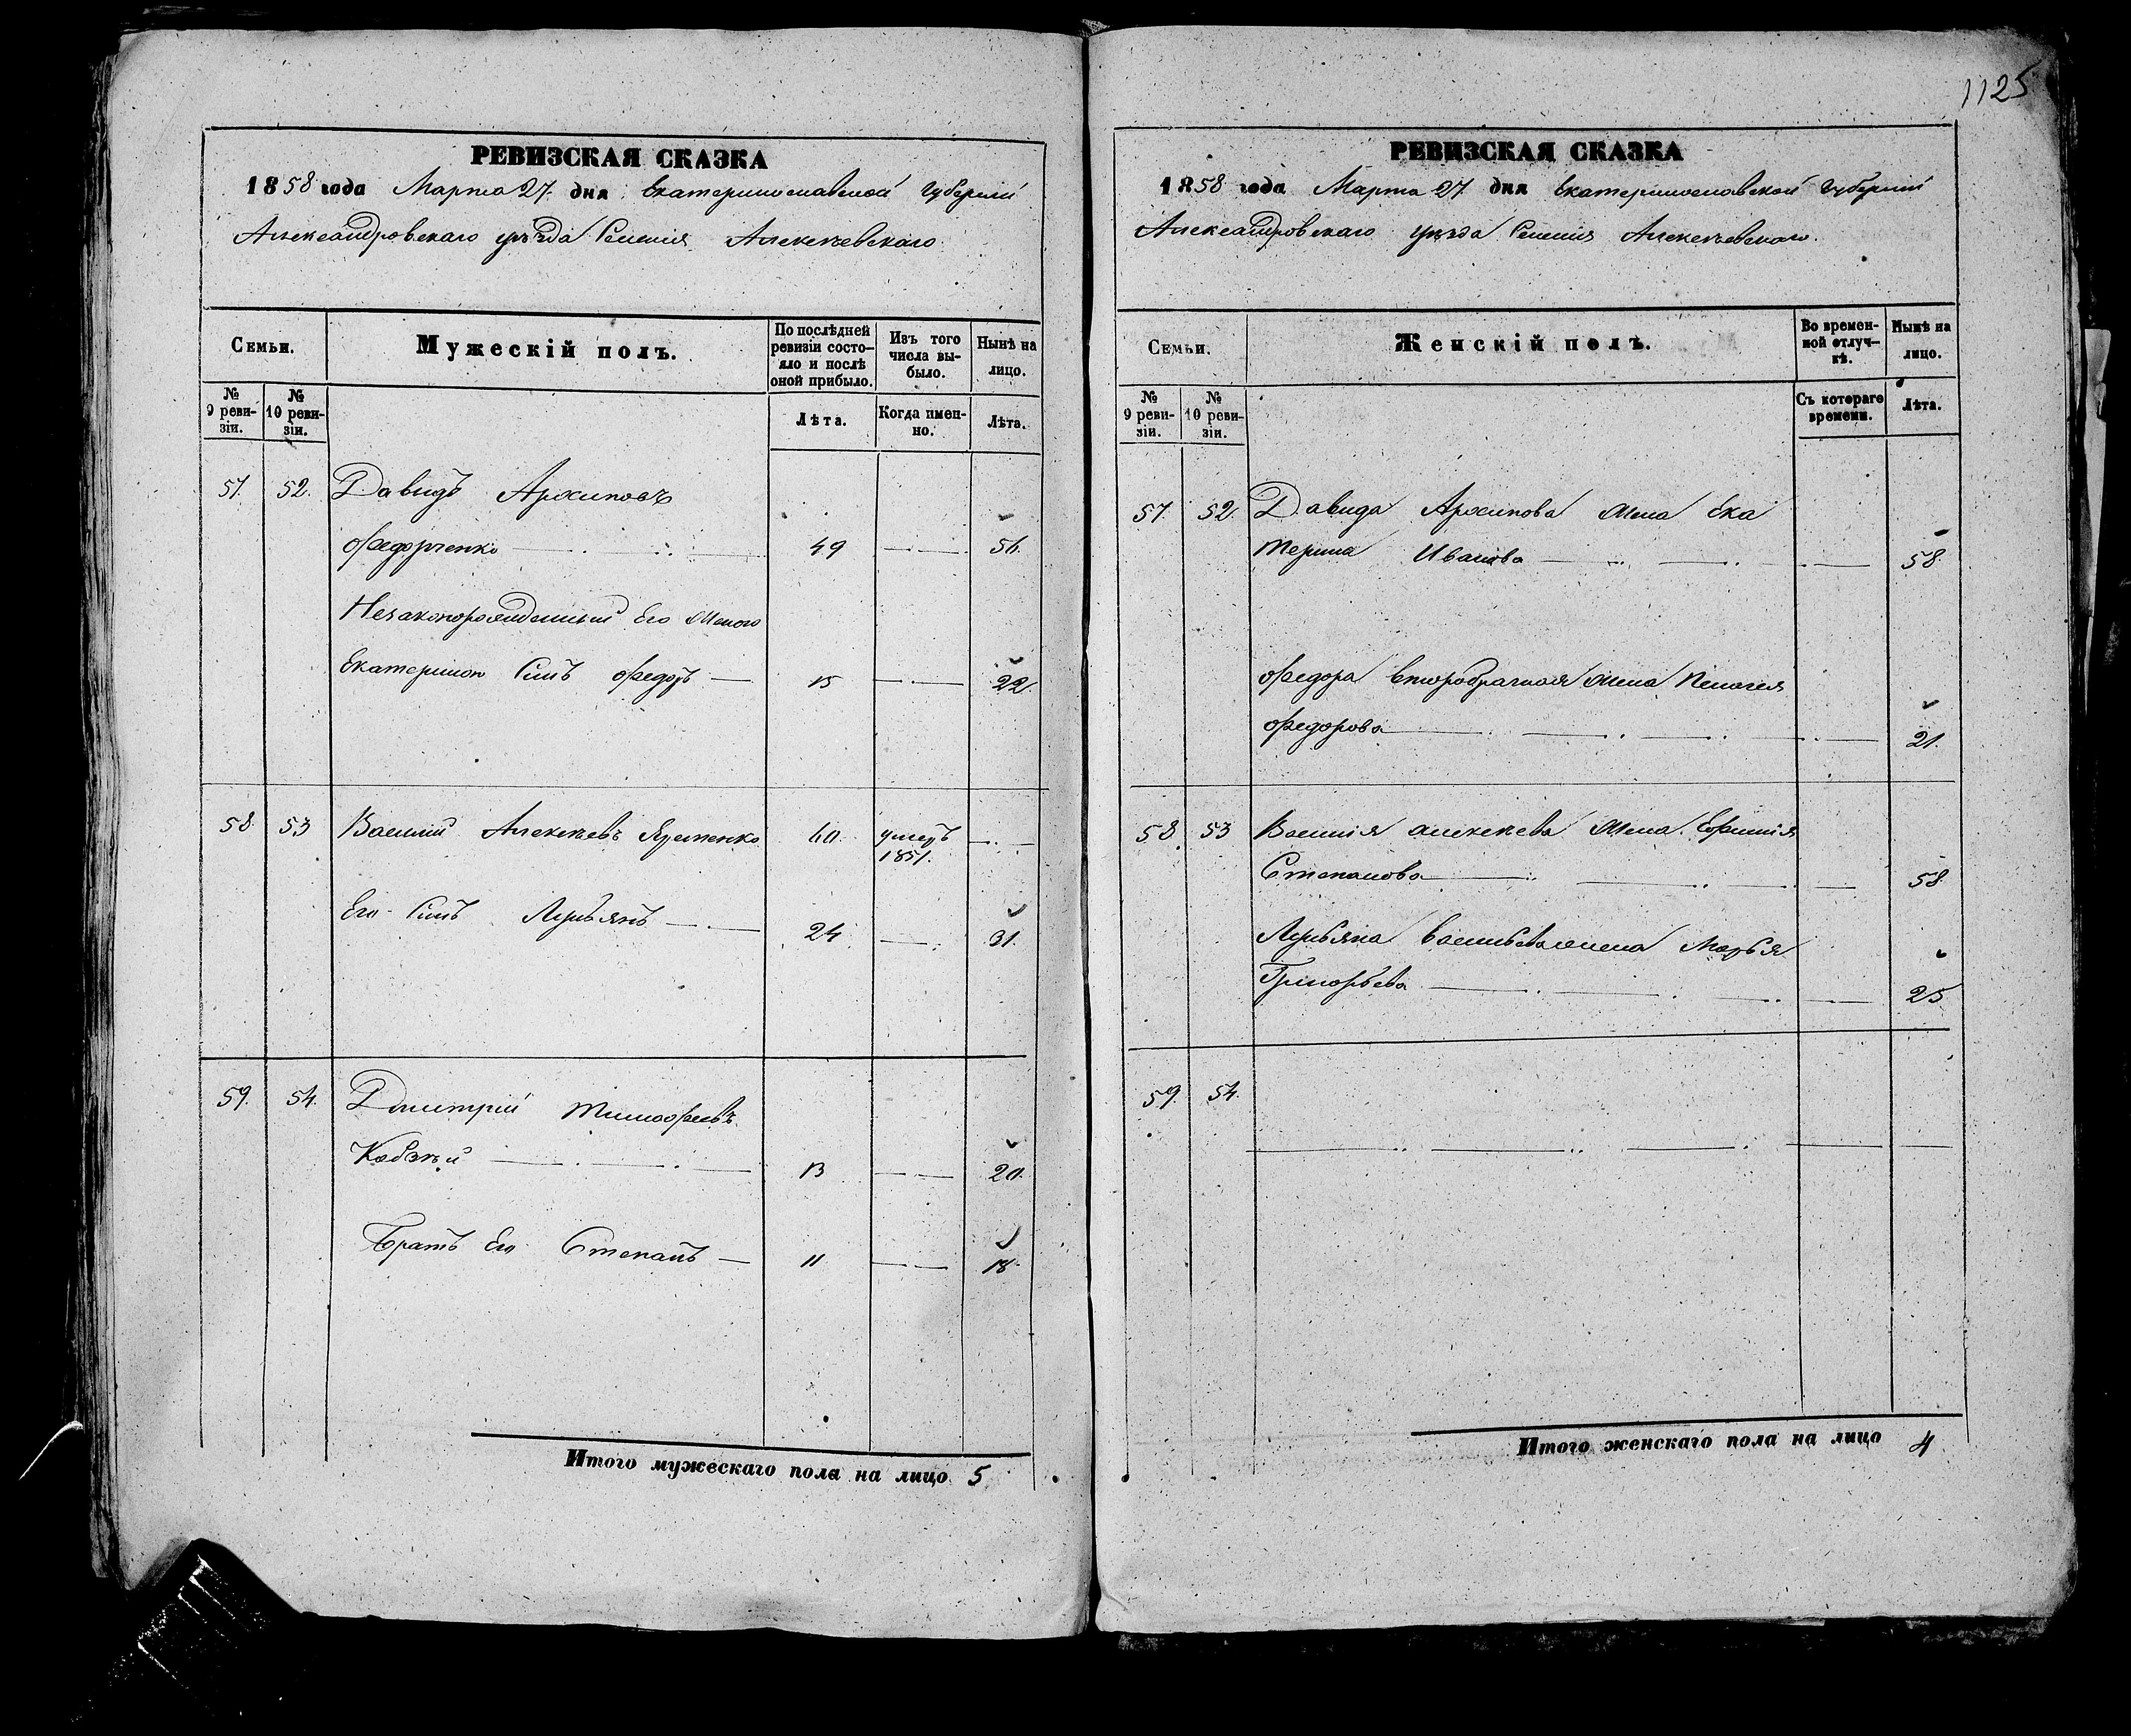 1125
РЕВИЗСКАЯ СКАЗКА
1858 года Марта 27. дня Екатеринославской Губерніи
Александровскаго уѣзда Селенія Алексѣевскаго
Семьи.
Мужескій полъ.
По послѣдней ревизіи состо-
яло и послѣ оной прибыло.
Изъ того числа вы-
было.
Нынѣ на лицо.
№ 9 реви-
зіи.
№ 10 реви-
зіи.
Лѣта.
Когда имен-
но.
Лѣта.
57. 52. Давидъ Архиповъ
Федорченко 49 56.
Незаконорожденный Его Женою
Екатериною Сынъ Федоръ 15 22
58 53 Василий Алексѣевъ Яременко 60. умеръ
1851.
Его Сынъ Лукьянъ 24 31.
59. 54. Дмитрій Тимофеевъ
13 20.
Братъ Его Степанъ 11 18.
Итого мужескаго пола на лицо 5
РЕВИЗСКАЯ СКАЗКА
1858 года Марта 27 дня Екатеринославской Губерніи
Александровскаго уѣзда Селенія Алексѣевскаго.
Семьи.
Женскій полъ.
Во времен-
ной отлуч-
кѣ.
Нынѣ на лицо.
№ 9 реви-
зіи.
№ 10 реви-
зіи.
Съ котораго времени.
Лѣта.
57. 52. Давида Архипова жена Ека
терина Иванова 58.
Федора второбрачная жена Пелагея
Федорова 21.
58. 53 Василія Алексѣева жена Ефимия
Степанова 58
Лукьяна Васильева жена Марья
Григорьева 25
59. 54.
Итого женскаго пола на лицо 4